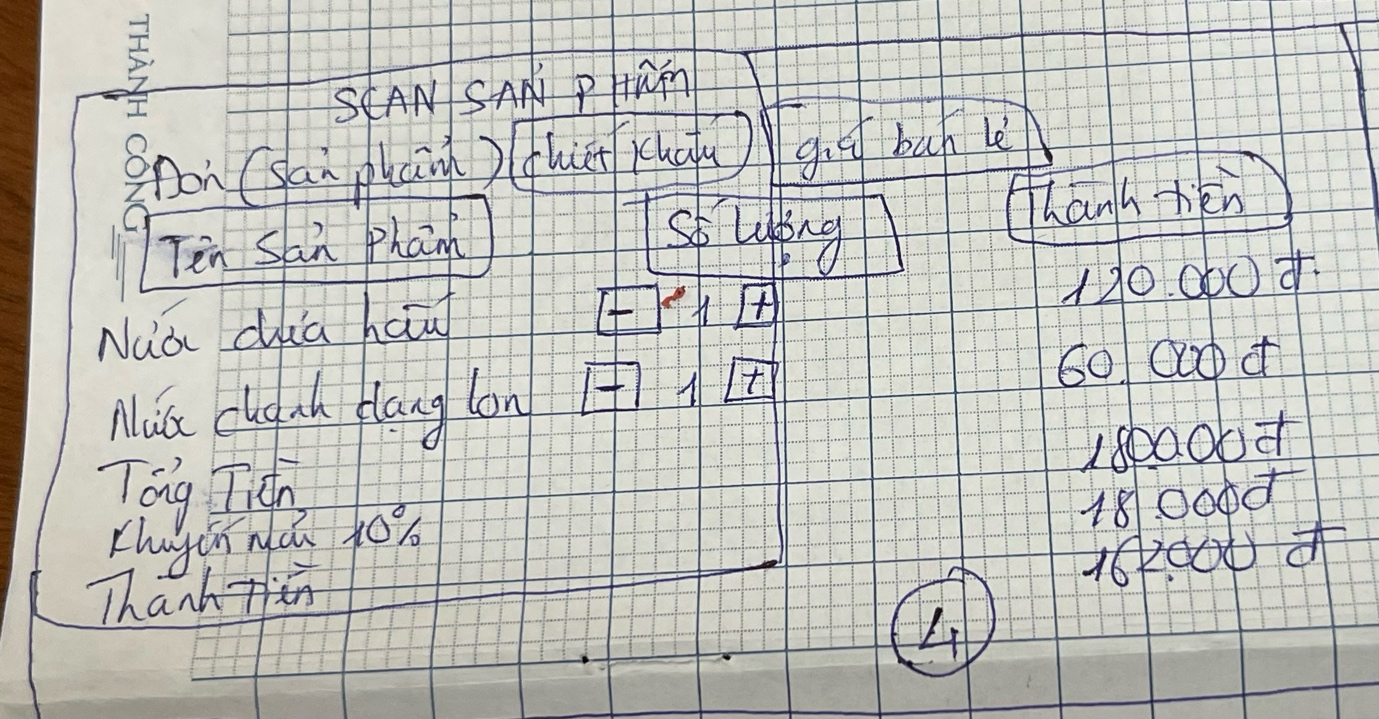 THÀNH CÔNG
SCAN SẢN PHẨM
Đơn (sản phẩm) chiết khấu giá bán lẻ
Tên sản phẩm Số lượng Thành tiền
Nước dưa hấu - 1 + 120.000 đ
Nước chanh dạng lon - 1 + 60.000 đ
Tổng Tiền 180.000 đ
Khuyến mãi 10% 18.000đ
Thành Tiền 162.000 đ
4